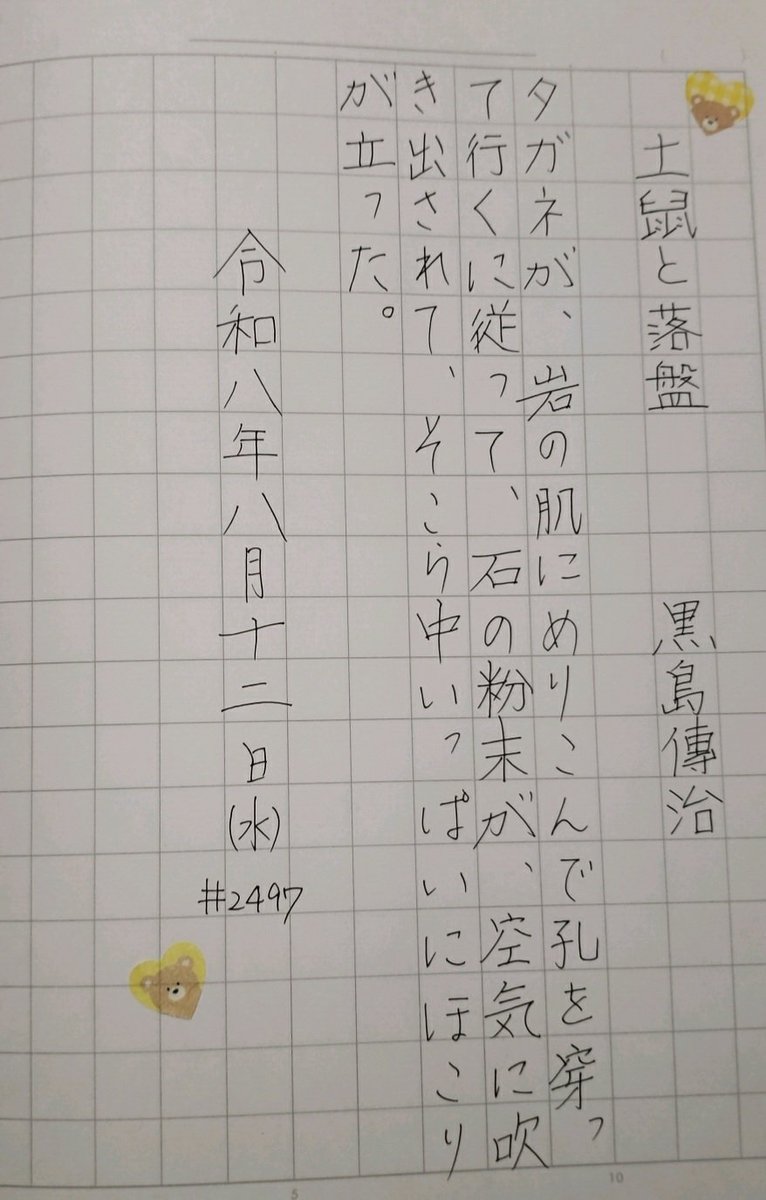 土鼠と落盤 黒島傳治
タガネが、岩の肌にめりこんで孔を穿っ
て行くに従って、石の粉末が、空気に吹
き出されて、そこら中いっぱいにほこり
が立った。
令和八年八月十二日(水)
#2497
5
10